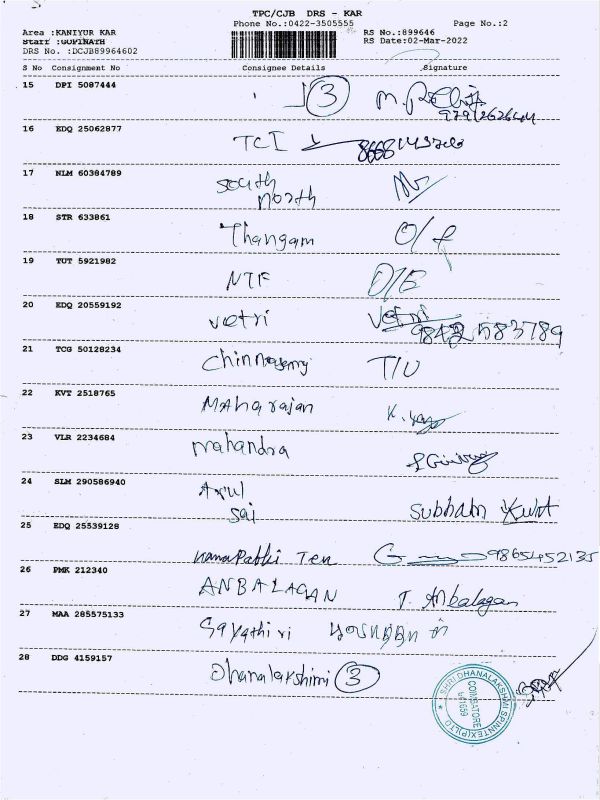 TPC/CJB DRS - KAR
Phone No.:0422-3505555 Page No.:2
Area :KANIYUR KAR RS No.:899646
Staff :GOPINATH RS Date:02-Mar-2022
DRS No. :DCJB89964602
S No Consignment No Consignee Details Signature
15 DPI 5087444
3
16 EDQ 25062877
TCI
17 NLM 60384789
South
North
18 STR 633861
Thangam O/f
19 TUT 5921982
NTF O/E
20 EDQ 20559192
vetri Vetri
21 TCG 50128234
T/U
22 KVT 2518765
MAharajan
23 VLR 2234684
mahandra
24 SLM 290586940
Arul
Sai Subham
25 EDQ 25539128
Tex 9865452135
26 PMK 212340
ANBALAGAN T. Anbalagan
27 MAA 285575133
Gayathiri
28 DDG 4159157
Dhanalakshimi 3
SHRI DHANALAKSHMI SPINNTEX (P) LTD
COIMBATORE
641659